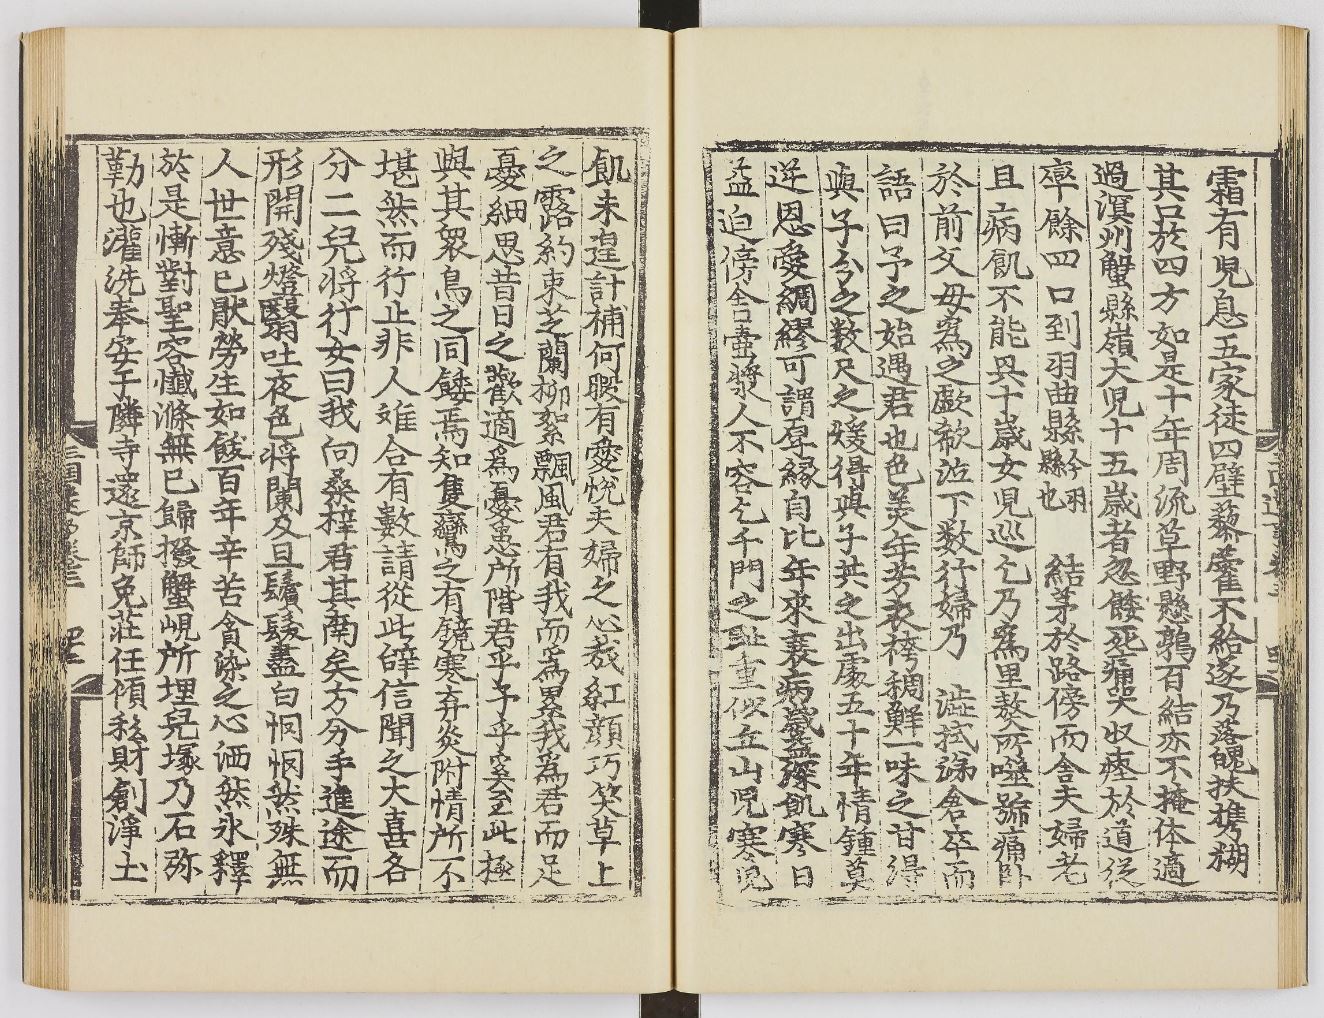 霜有児息五家徒四壁藜藿不給遂乃落魄扶携糊
其口於四方如是十年周流草野懸鶉百結亦不掩体適
過溟州蟹縣嶺大児十五歳者忽餧死痛哭収瘞於道従
率餘四口到羽曲縣今羽縣也結茅於路傍而舎夫婦老
且病飢不能興十歳女児巡乞乃為里獒所噬號痛臥
於前父母為之歔欷泣下数行婦乃澁拭涕倉卒而
語曰予之始遇君也色美年芳衣袴稠鮮一味之甘得
與子分之数尺之煖得與子共之出處五十年情鍾莫
逆恩愛綢繆可謂厚縁自比年来衰病歳益深飢寒日
益迫傍舎壺漿人不容乞千門之耻重似丘山児寒児
飢未遑計補何暇有愛悅夫婦之心哉紅顔巧笑草上
之露約束芝蘭柳絮飄風君有我而為累我為君而足
憂細思昔日之歡適為憂患所階君乎予乎奚至此極
與其衆鳥之同餧焉知隻鸞之有鏡寒弃炎附情所不
堪然而行止非人離合有數請從此辝信聞之大喜各
分二児将行女曰我向桑梓君其南矣方分手進途而
形開殘燈翳吐夜色将闌及旦鬢髮盡白惘惘然殊無
人世意已厭勞生如飫百年辛苦貪染之心洒然氷釋
於是慚對聖容懺滌無已歸撥蟹峴所埋児塚乃石弥
勒也灌洗奉安于隣寺還京師免莊任傾私財創淨土